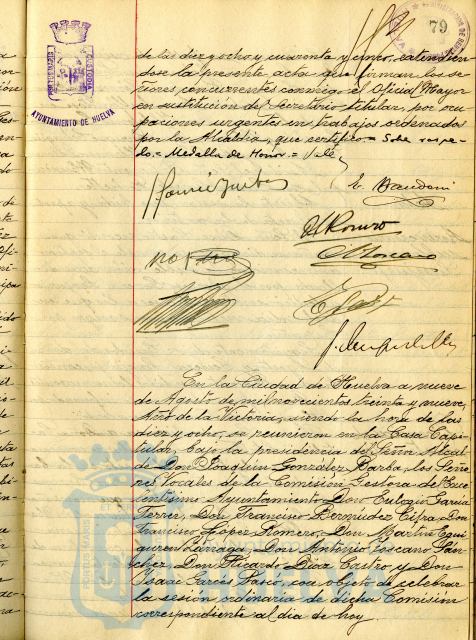 79
AYUNTAMIENTO DE HUELVA
de las diez y ocho y cuarenta y cinco, extendien-
dose la presente acta que firman los se-
ñores concurrentes conmigo el Oficial Mayor
en sustitución del Secretario titular, por ocu-
paciones urgentes en trabajos ordenados
por la Alcaldía, que certifico = Sobe raspa-
do = Medalla de Honor = Vale
En la Ciudad de Huelva a nueve
de Agosto de mil novecientos treinta y nueve,
Año de la Victoria, siendo la hora de las
diez y ocho, se reunieron en la Casa Capi-
tular, bajo la presidencia del Señor Alcal-
de Don Joaquín González Barba, los Seño-
res Vocales de la Comisión Gestora del Exce-
lentísimo Ayuntamiento Don Eulogio García
Don Francisco Bermúdez Cifra, Don
Francisco López Romero, Don Martín Equi-
guren Don Antonio Toscano Sán-
chez, Don Ricardo Díaz Castro y Don
Isaac Garcés con objeto de celebrar
la sesión ordinaria de dicha Comisión
correspondiente al día de hoy.